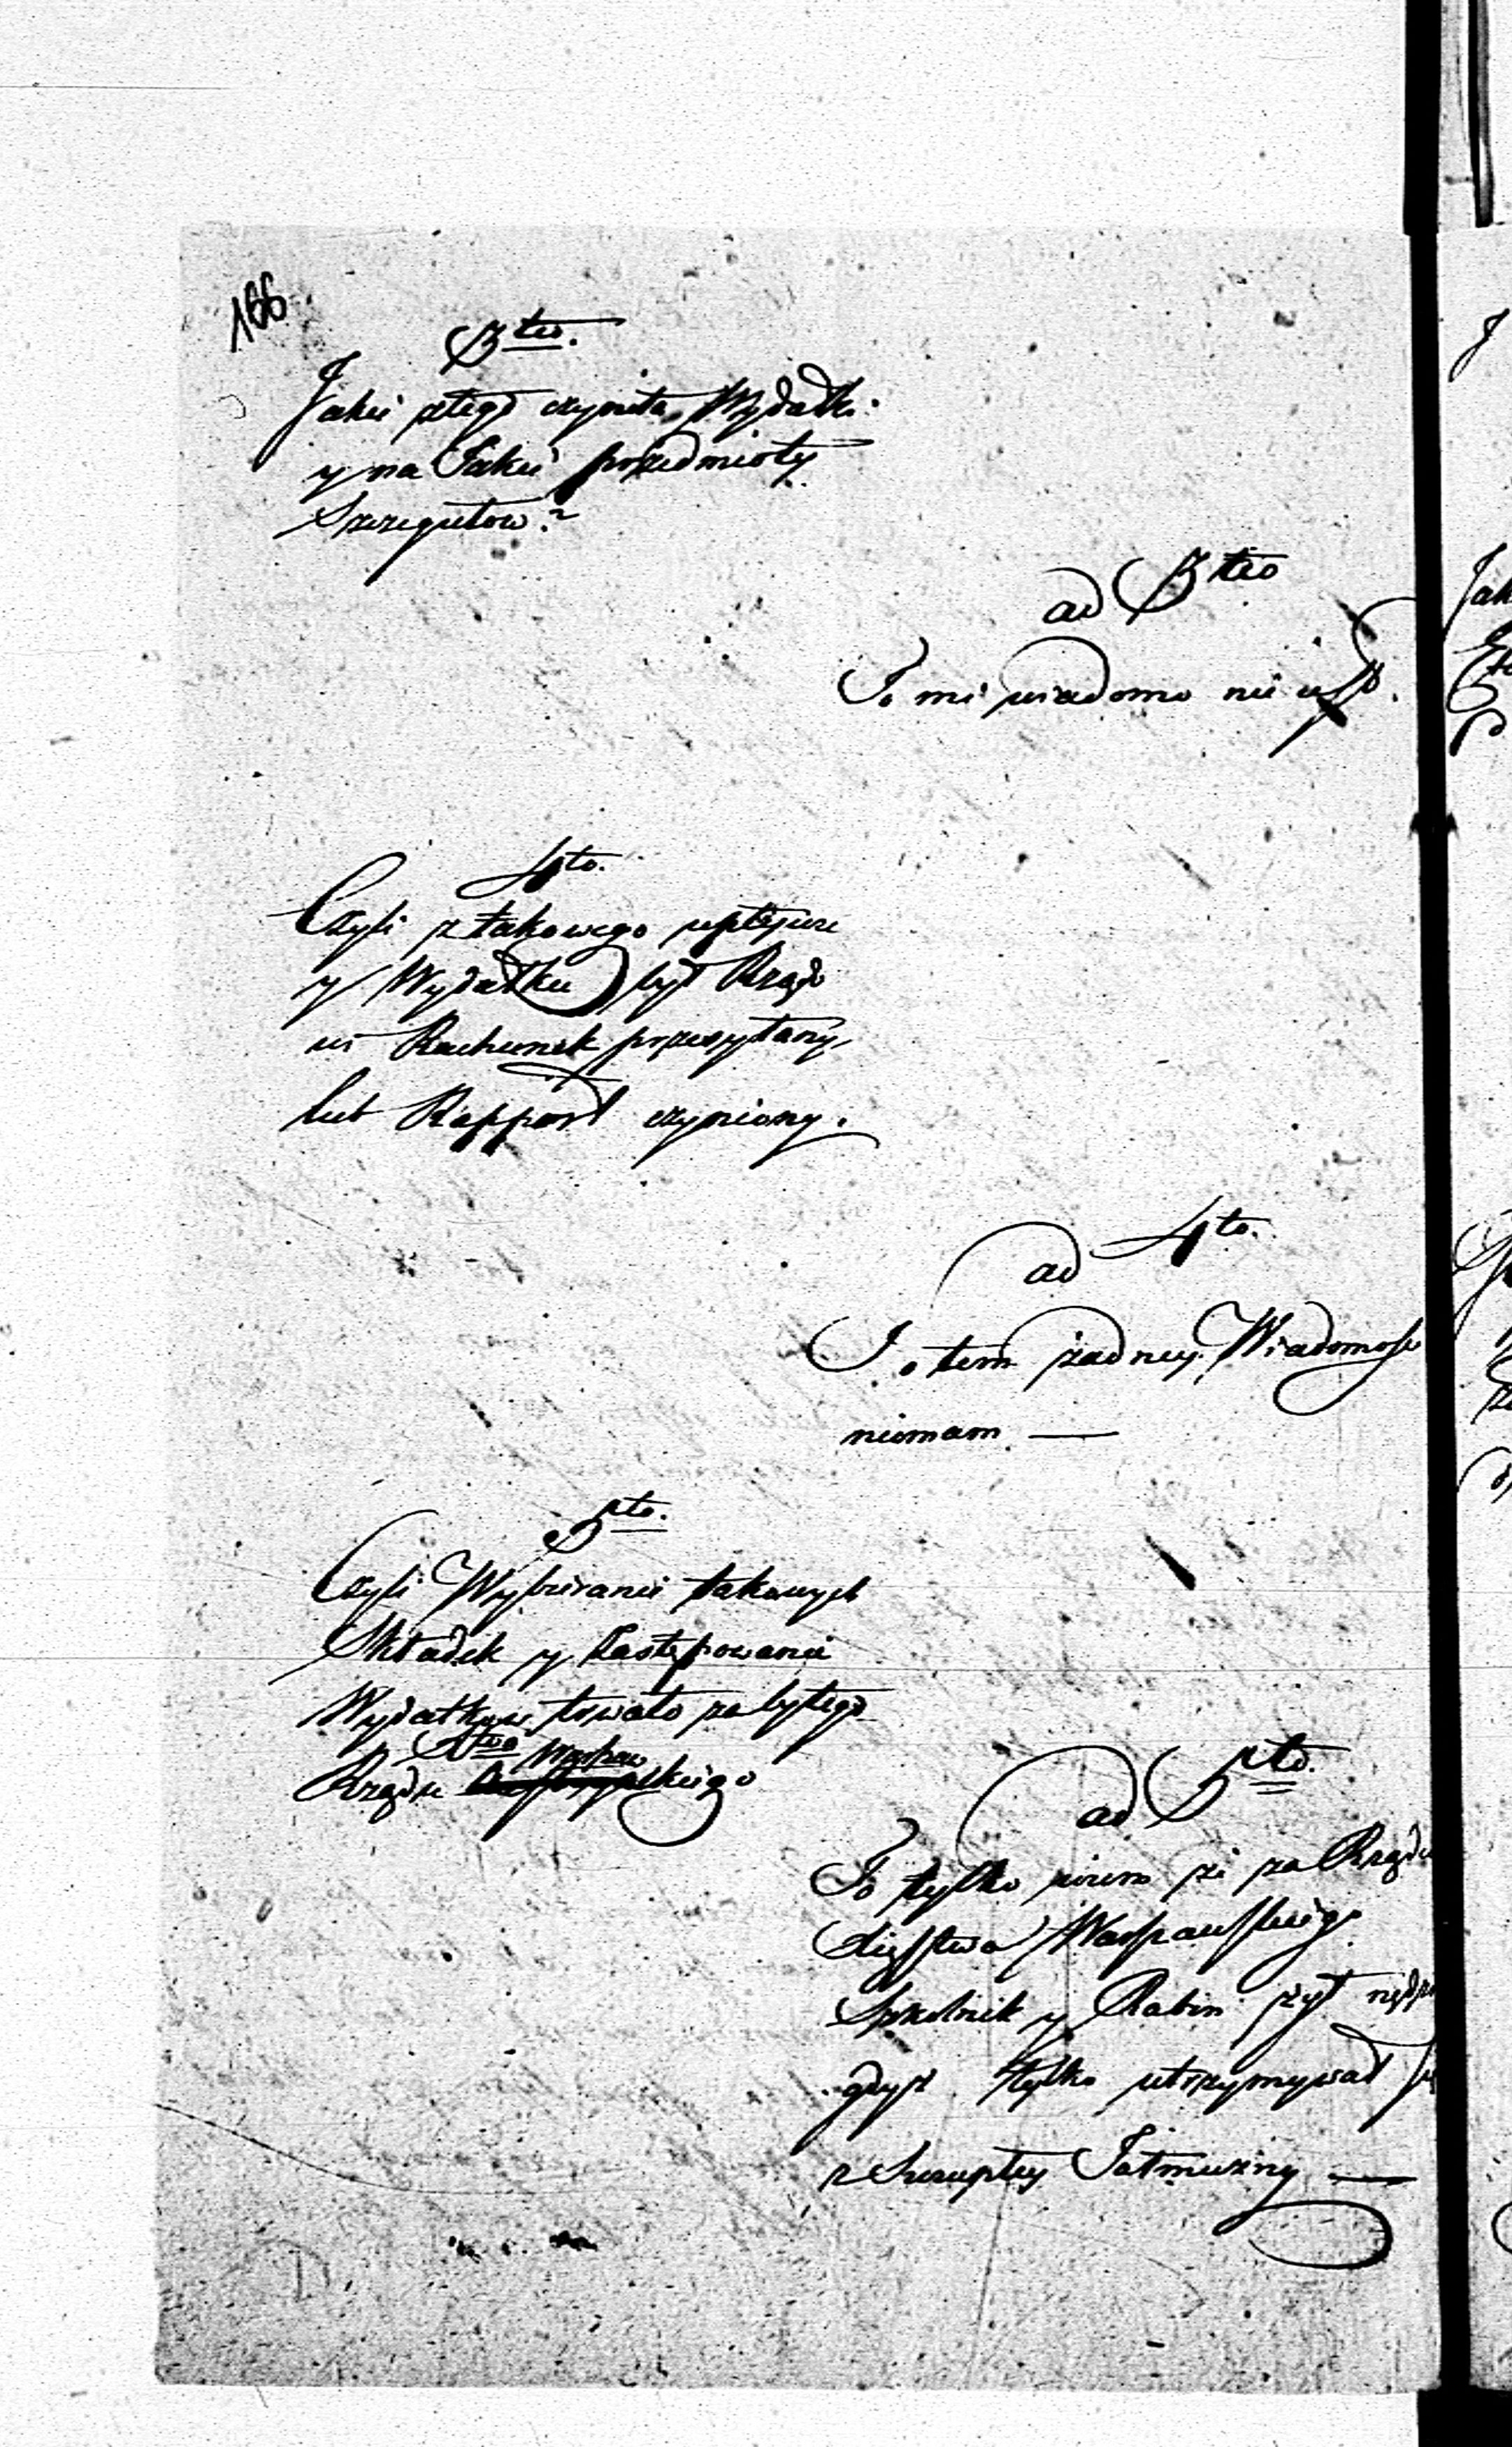 166
3tio.
Jakie ztego czyniła Wydatki
y na Jakie przedmioty
Szczegułow?
ad 3tio
To mi wiadomo nie iest.
4to.
Czyli z takowego
y Wydatku był Rządo
wi Rachunek przesyłany,
lub Rapport czyniony.
ad 4to.
O tem żadney Wiadomości
niemam —
5to.
Czyli Wybieranie takowych
Składek y Zastępowanie
Wydatkow trwało za byłego
Xtwa Warszaw
Rządu skiego
ad 5to.
To tylko wiem że za Rządu
Xięstwa Warszawskiego
Szkolnik y Rabin żył
gdyż tylko utrzymywał
z Szczupłey Jałmużny —